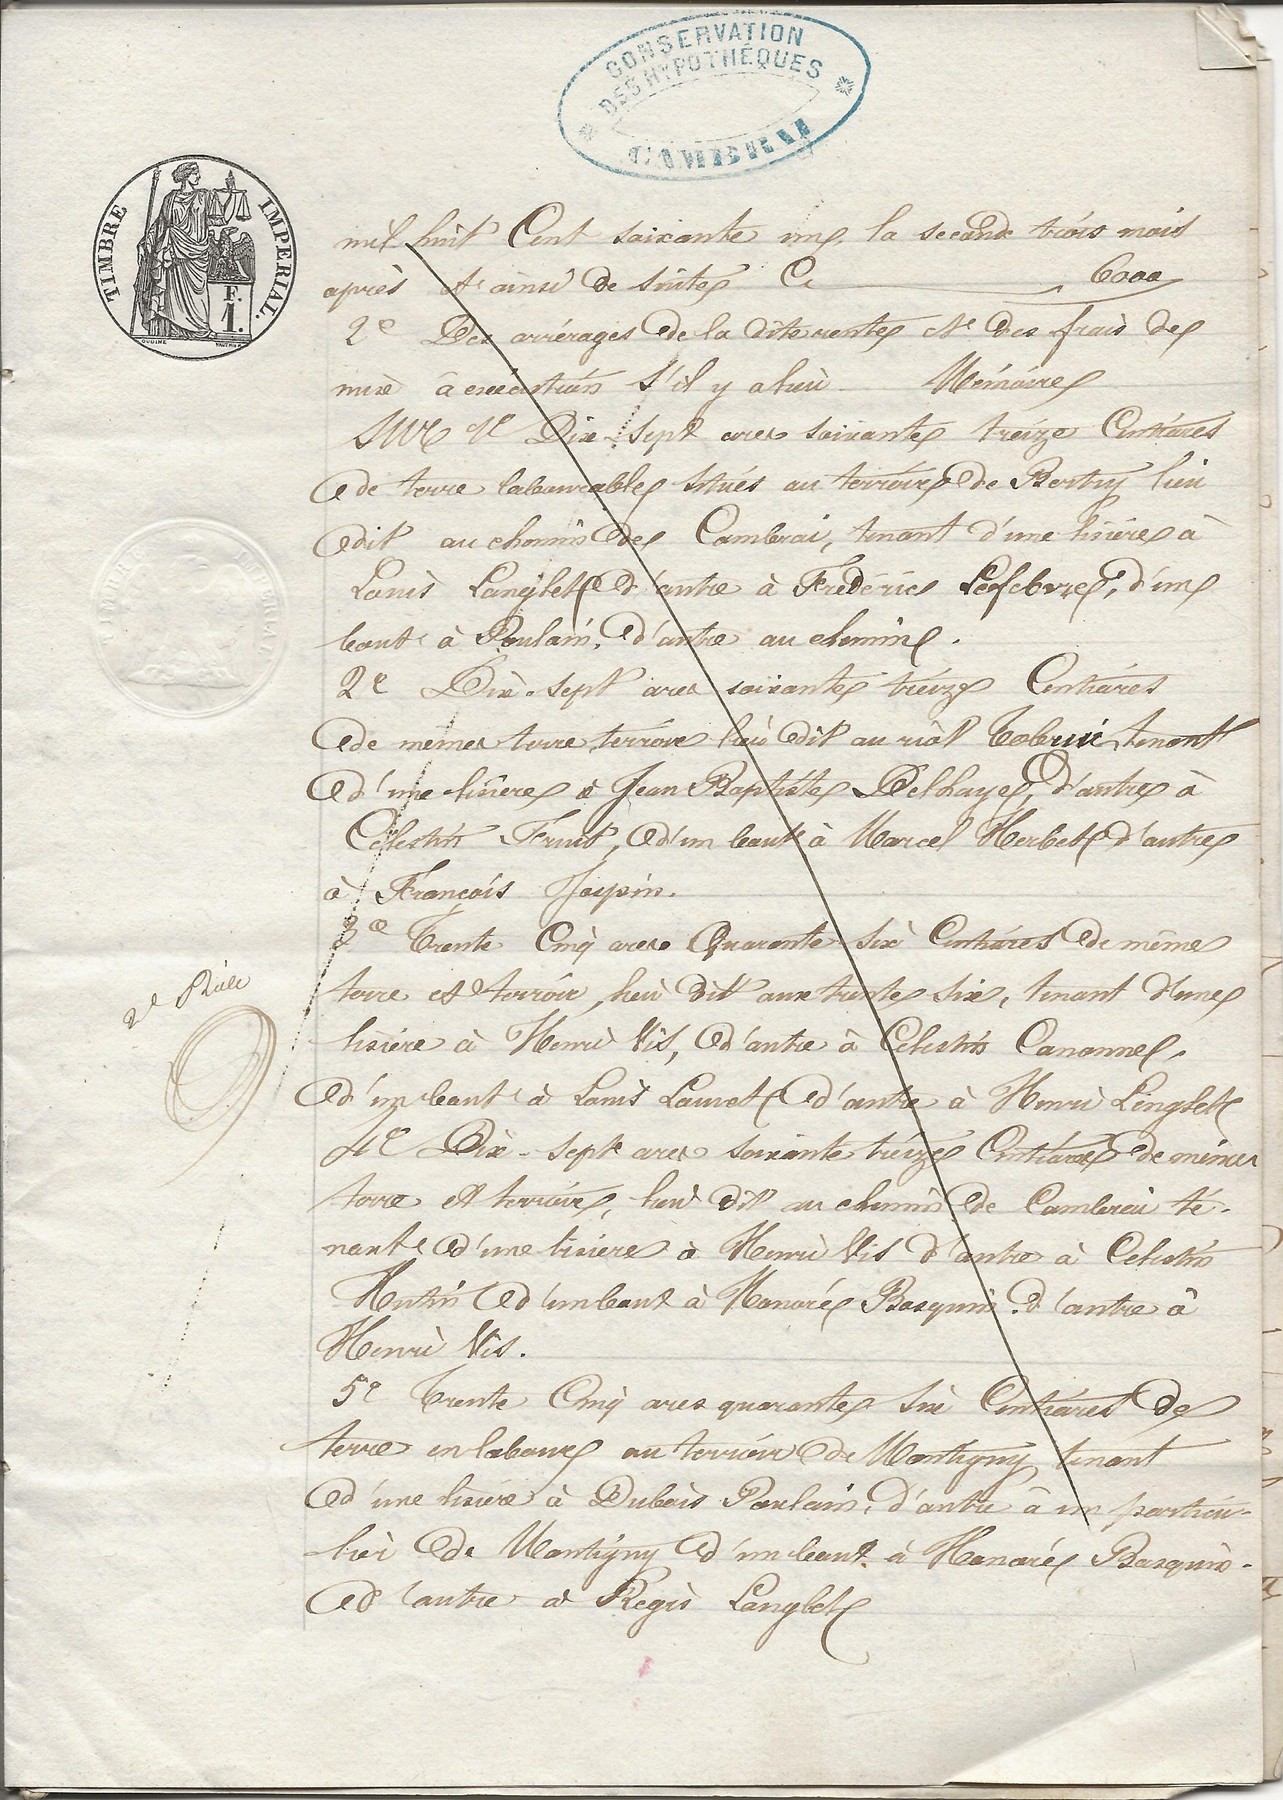 CONSERVATION
DES HYPOTHÉQUES
TIMBRE IMPERIAL.
F.
1.
OUDINE
mil huit Cent soixante un, la seconde trois mois
après et ainsi de suite, Ci 6000
2e Des arrérages de la dite rente et des frais de
mise à exécution s'il y a lieu Mémoire
Sur 1e Dix-sept ares soixante treize Centiares
de terre labourable situés au terroir de Bertry lieu
dit au chemin de Cambrai, tenant d'une lisière à
Louis Langlet d'autre à Frédéric Lefebvre, d'un
bout à Poulain, d'autre au chemin.
2e Dix-sept ares soixante treize Centiares
de même terre terroir lieu dit au riôt tenant
d'une lisière à Jean Baptiste Delhaye, d'autre à
Célestin Fruit, d'un bout à Marcel Herbet d'autre
à François Jaspin.
3e Trente Cinq ares Quarante six Centiares de même
terre et terroir, lieu dit aux trente six, tenant d'une
lisière à Henri Vis, d'autre à Célestin Canonne,
d'un bout à Louis Lauret d'autre à Henri Linglet
4e Dix-sept ares soixante treize Centiares de même
terre et terroir, lieu dit au chemin de Cambrai te-
nant d'une lisière à Henri Vis d'autre à Célestin
Hutin d'un bout à Honoré Basquin. d'autre à
Henri Vis.
5e Trente Cinq ares quarante six Centiares de
terre en labour au terroir de Montigny tenant
d'une lisière à Dubois Poulain, d'autre à un particu-
lier de Montigny d'un bout à Honoré Basquin-
d'autre à Régis Langlet
2e Rôle